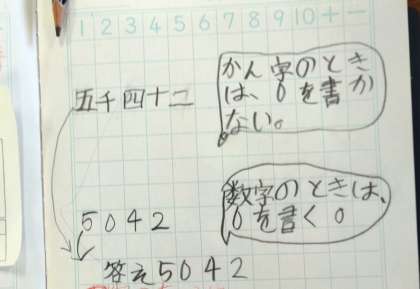 1 2 3 4 5 6 7 8 9 10 + −
かん字のとき
は、0を書か
ない。
五千四十二
数字のときは、
0を書く。
5042
答え5042